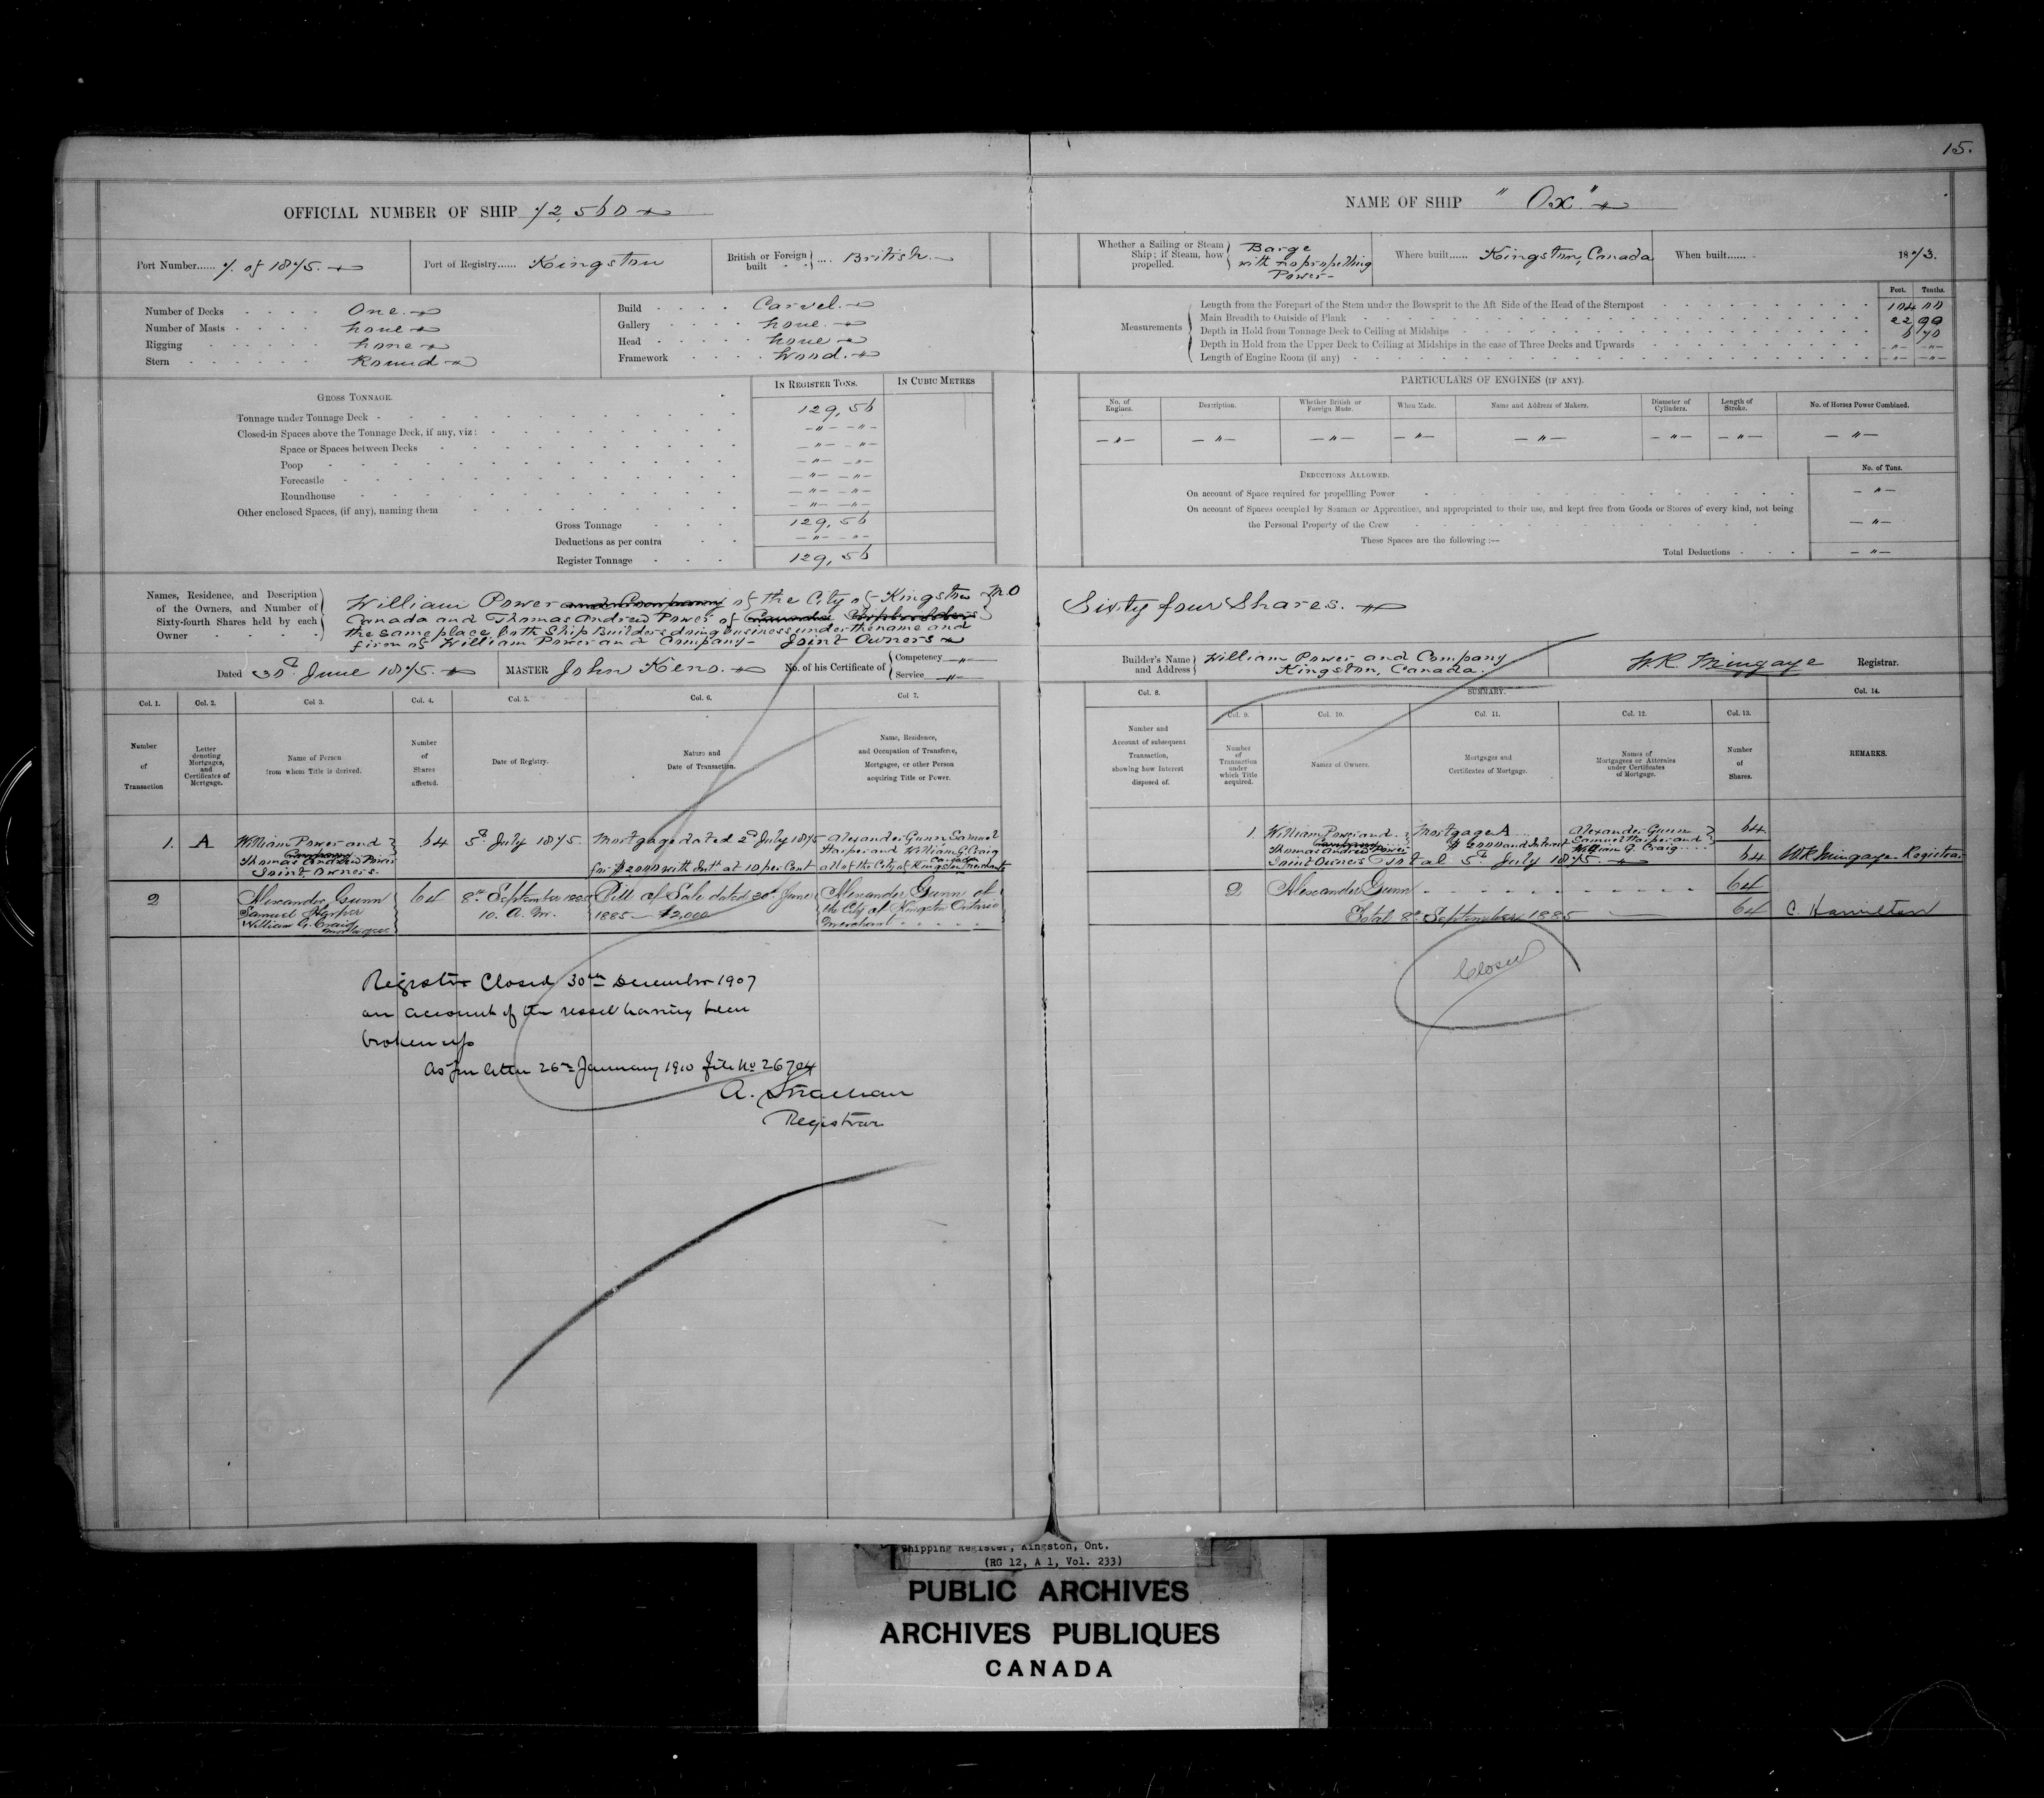 15.
OFFICIAL NUMBER OF SHIP 72,560
NAME OF SHIP "Ox."
Port Number...... 7. of 1875.
Port of Registry...... Kingston
British or Foreign built .... British.
Whether a Sailing or Steam Ship; if Steam, how propelled. Barge with no propelling Power-
Where built...... Kingston, Canada
When built...... 1873.
Number of Decks One.
Number of Masts none
Rigging none
Stern Round
Build Carvel.
Gallery none.
Head none
Framework Wood.
Measurements
Feet. Tenths.
Length from the Forepart of the Stem under the Bowsprit to the Aft Side of the Head of the Sternpost 104 00
Main Breadth to Outside of Plank 22 90
Depth in Hold from Tonnage Deck to Ceiling at Midships 6 70
Depth in Hold from the Upper Deck to Ceiling at Midships in the case of Three Decks and Upwards -"- -"-
Length of Engine Room (if any) -"- -"-
GROSS TONNAGE.
IN REGISTER TONS.
IN CUBIC METRES
Tonnage under Tonnage Deck 129,56
Closed-in Spaces above the Tonnage Deck, if any, viz: -"- -"-
Space or Spaces between Decks -"- -"-
Poop -"- -"-
Forecastle -"- -"-
Roundhouse -"- -"-
Other enclosed Spaces, (if any), naming them -"- -"-
Gross Tonnage 129,56
Deductions as per contra -"- -"-
Register Tonnage 129,56
PARTICULARS OF ENGINES (IF ANY).
No. of Engines.
Description.
Whether British or Foreign Made.
When Made.
Name and Address of Makers.
Diameter of Cylinders.
Length of Stroke.
No. of Horses Power Combined.
-"- -"- -"- -"- -"- -"- -"- -"-
DEDUCTIONS ALLOWED.
No. of Tons.
On account of Space required for propellling Power -"-
On account of Spaces occupied by Seamen or Apprentices, and appropriated to their use, and kept free from Goods or Stores of every kind, not being
the Personal Property of the Crew -"-
These Spaces are the following :—
Total Deductions -"-
Names, Residence, and Description
of the Owners, and Number of
Sixty-fourth Shares held by each
Owner
William Power and Company of the City of Kingston
Canada and Thomas Andrew Power of
the same place, both Ship Builders doing business under the name and
firm of William Power and Company- Joint Owners
Sixty four Shares.
Dated 30th June 1875.
MASTER John Keno.
No. of his Certificate of Competency -"-
Service -"-
Builder's Name and Address William Power and Company
Kingston, Canada.
W.R. Mingaye Registrar.
Col. 1.
Number of Transaction
Col. 2.
Letter denoting Mortgages, and Certificates of Mortgage.
Col 3.
Name of Person from whom Title is derived.
Col. 4.
Number of Shares affected.
Col. 5.
Date of Registry.
Col. 6.
Nature and Date of Transaction.
Col 7.
Name, Residence, and Occupation of Transferee, Mortgagee, or other Person acquiring Title or Power.
Col. 8.
Number and Account of subsequent Transaction, showing how Interest disposed of.
SUMMARY.
Col. 9.
Number of Transaction under which Title acquired.
Col. 10.
Names of Owners.
Col. 11.
Mortgages and Certificates of Mortgage.
Col. 12.
Names of Mortgagees or Attornies under Certificates of Mortgage.
Col. 13.
Number of Shares.
Col. 14.
REMARKS.
1. A
William Power and
Company
Thomas Andrew Power
Joint Owners.
64
5th July 1875.
Mortgage dated 2d July 1875
for $2000 with Intt. at 10 per Cent
Alexander Gunn Samuel
Harper and William G. Craig
all of the City of Kingston Canada Merchants
1. William Power and
Company
Thomas Andrew Power
Joint Owners
Mortgage A
$2000 and Interest
Alexander Gunn
Samuel Harper and
William G. Craig
64
Total 5th July 1875. 64 WR Mingaye Registrar
2
Alexander Gunn
Samuel Harper
William G. Craig
Mortgagees
64
8th September 1885
10. A. M.
Bill of Sale dated 30th June
1885 — $2,000
Alexander Gunn of
the City of Kingston Ontario
Merchant
2. Alexander Gunn 64
Total 8th September 1885 64 C. Hamilton
Register Closed 30th December 1907
on account of the vessel having been
broken up
As per letter 26th January 1910 file No 26704
A. Strachan
Registrar
Closed
Shipping Register, Kingston, Ont.
(RG 12, A 1, Vol. 233)
PUBLIC ARCHIVES
ARCHIVES PUBLIQUES
CANADA